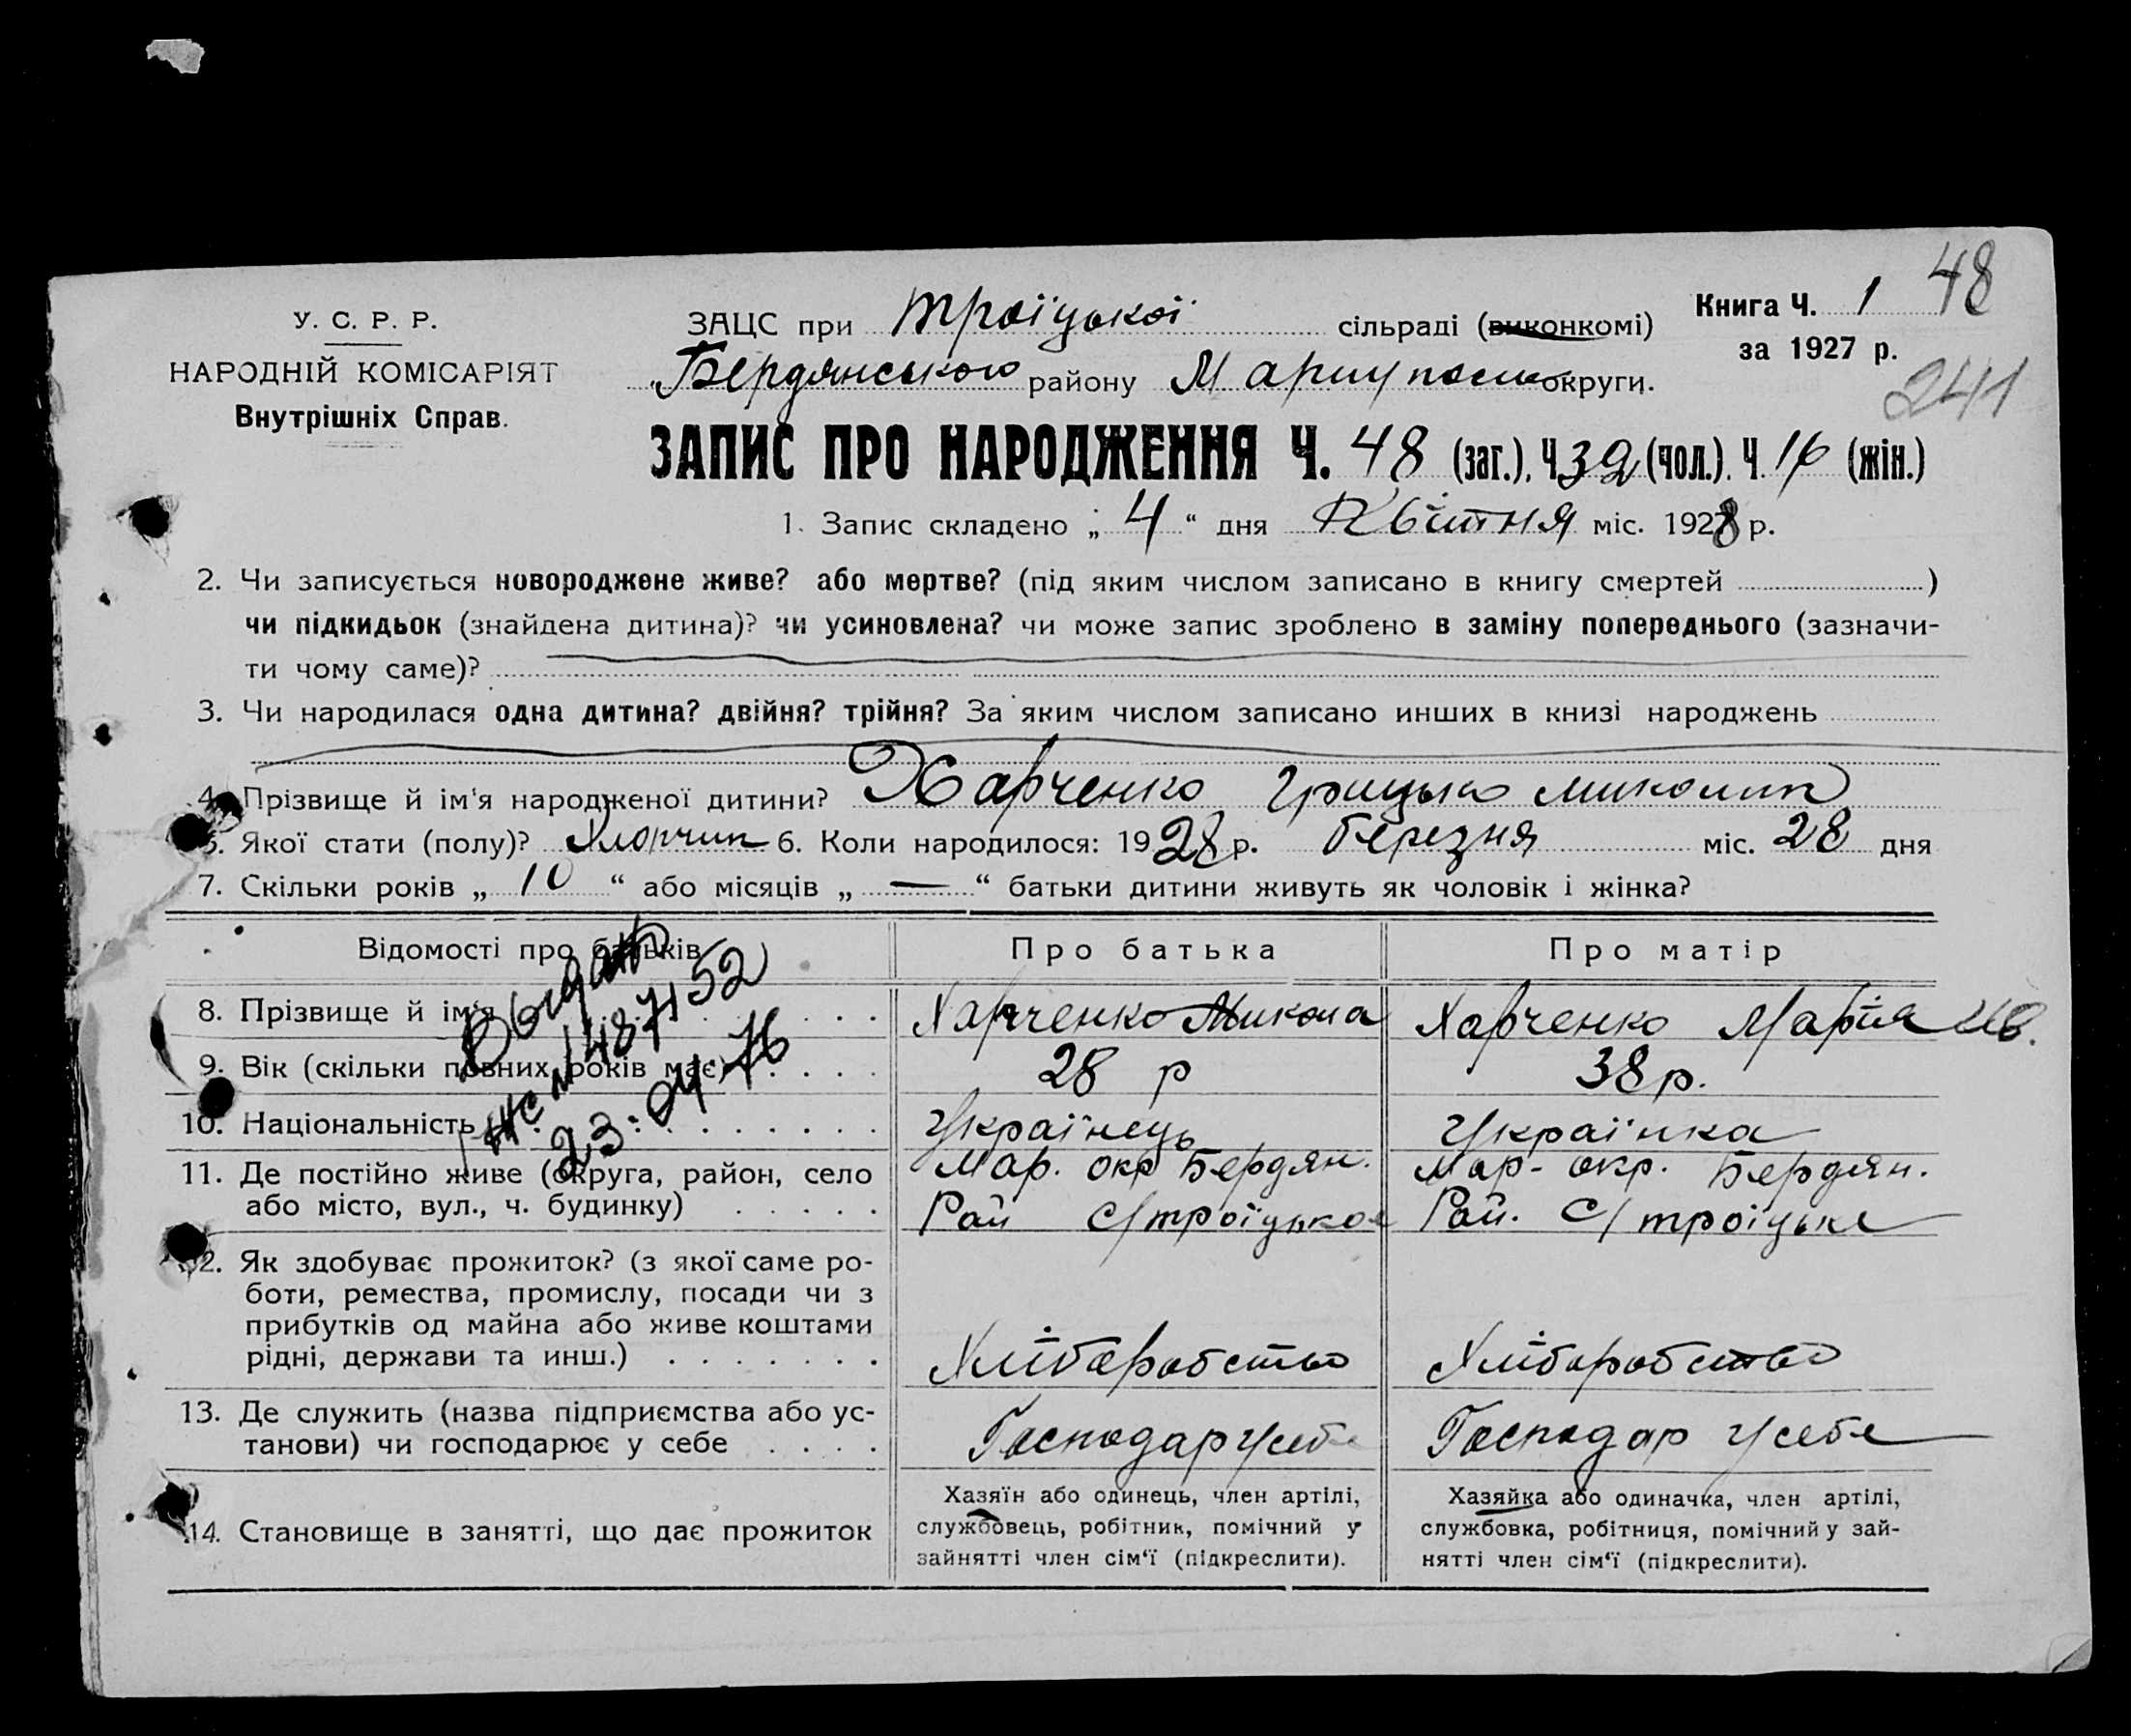 48
У. С. Р. Р.
НАРОДНІЙ КОМІСАРІЯТ
Внутрішніх Справ.
ЗАЦС при Троїцької сільраді (виконкомі)
Книга Ч. 1
за 1927 р.
Бердянського району Маріупольс округи.
241
ЗАПИС ПРО НАРОДЖЕННЯ Ч. 48 (заг.), Ч. 32 (чол.). Ч. 16 (жін.)
1. Запис складено „ 4 “ дня Квітня міс. 1928 р.
2. Чи записується новороджене живе? або мертве? (під яким числом записано в книгу смертей )
чи підкидьок (знайдена дитина)? чи усиновлена? чи може запис зроблено в заміну попереднього (зазначи-
ти чому саме)?
3. Чи народилася одна дитина? двійня? трійня? За яким числом записано инших в книзі народжень
4. Прізвище й ім'я народженої дитини? Харченко Грицько Микол
5. Якої стати (полу)? Хлопчик 6. Коли народилося: 1928 р. березня міс. 28 дня
7. Скільки років „ 10 “ або місяців „ — “ батьки дитини живуть як чоловік і жінка?
Відомості про батьків
Про батька
Про матір
8. Прізвище й ім'я
Харченко Микола
Харченко Марія Ив.
9. Вік (скільки повних років має)
28 р
38 р.
10. Національність
Українець
Українка
11. Де постійно живе (округа, район, село
або місто, вул., ч. будинку)
Мар. окр Бердян.
Рай С/Троїцькое
Мар. окр. Бердян.
Рай. С/Троїцьке
12. Як здобуває прожиток? (з якої саме ро-
боти, ремества, промислу, посади чи з
прибутків од майна або живе коштами
рідні, держави та инш.)
Хліборобство
Хліборобство
13. Де служить (назва підприємства або ус-
танови) чи господарює у себе
Господар у себе
Господар у себе
14. Становище в занятті, що дає прожиток
Хазяїн або одинець, член артілі,
службовець, робітник, помічний у
зайнятті член сім'ї (підкреслити).
Хазяйка або одиначка, член артілі,
службовка, робітниця, помічний у зай-
нятті член сім'ї (підкреслити).
23.04.76